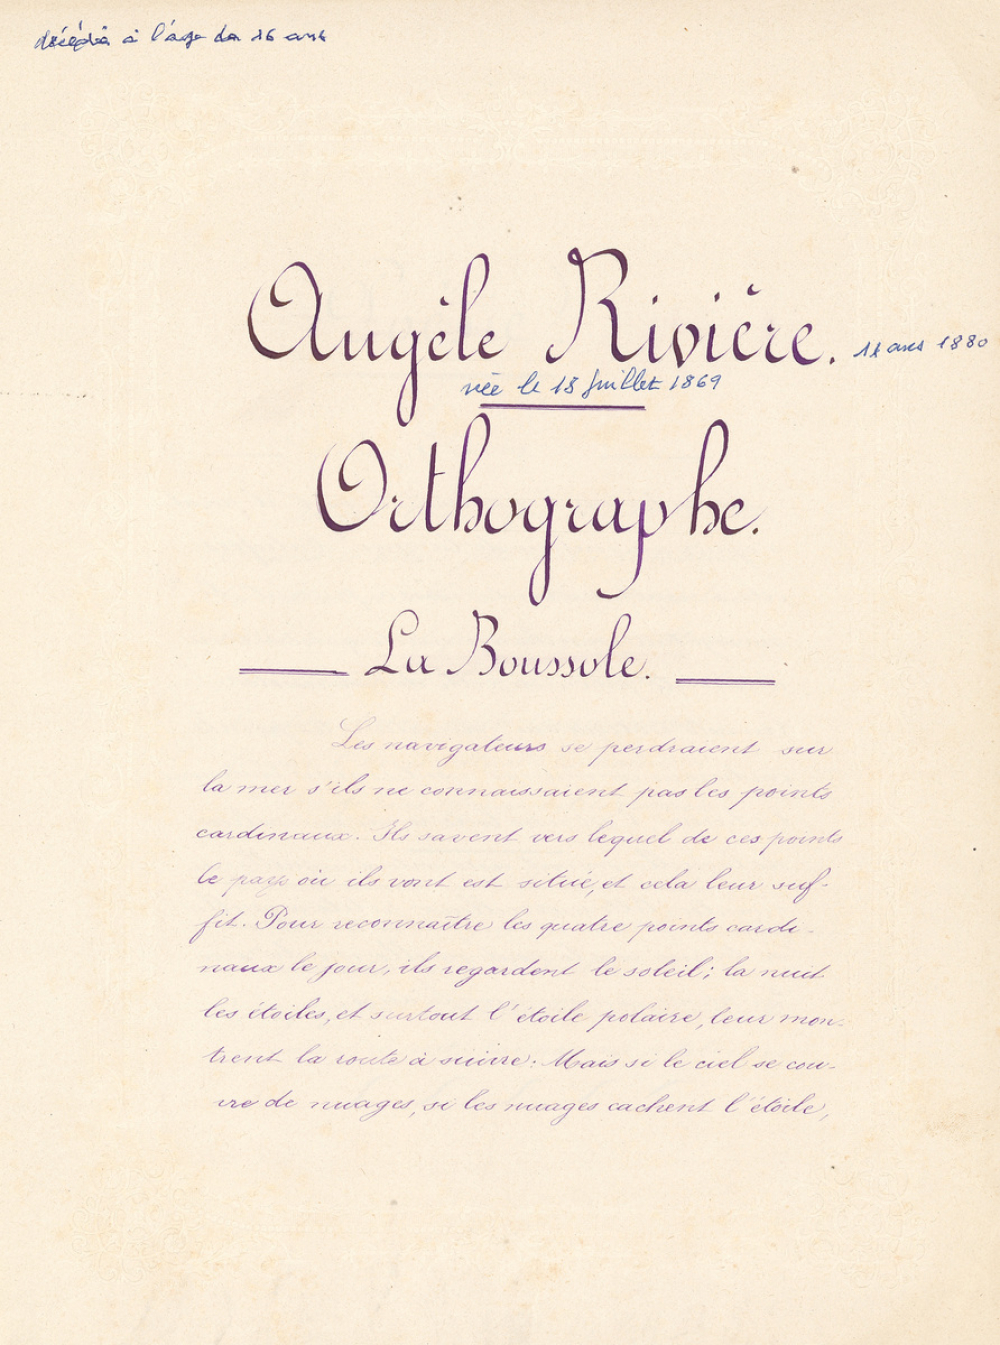 décédée à l'âge de 16 ans
Angèle Rivière. 11 ans 1880
née le 18 Juillet 1869
Orthographe.
La Boussole.
Les navigateurs se perdraient sur
la mer s'ils ne connaissaient pas les points
cardinaux. Ils savent vers lequel de ces points
le pays où ils vont est situé, et cela leur suf-
fit. Pour reconnaître les quatre points cardi-
naux le jour, ils regardent le soleil; la nuit
les étoiles, et surtout l'étoile polaire, leur mon-
trent la route à suivre: Mais si le ciel se cou-
vre de nuages, si les nuages cachent l'étoile,